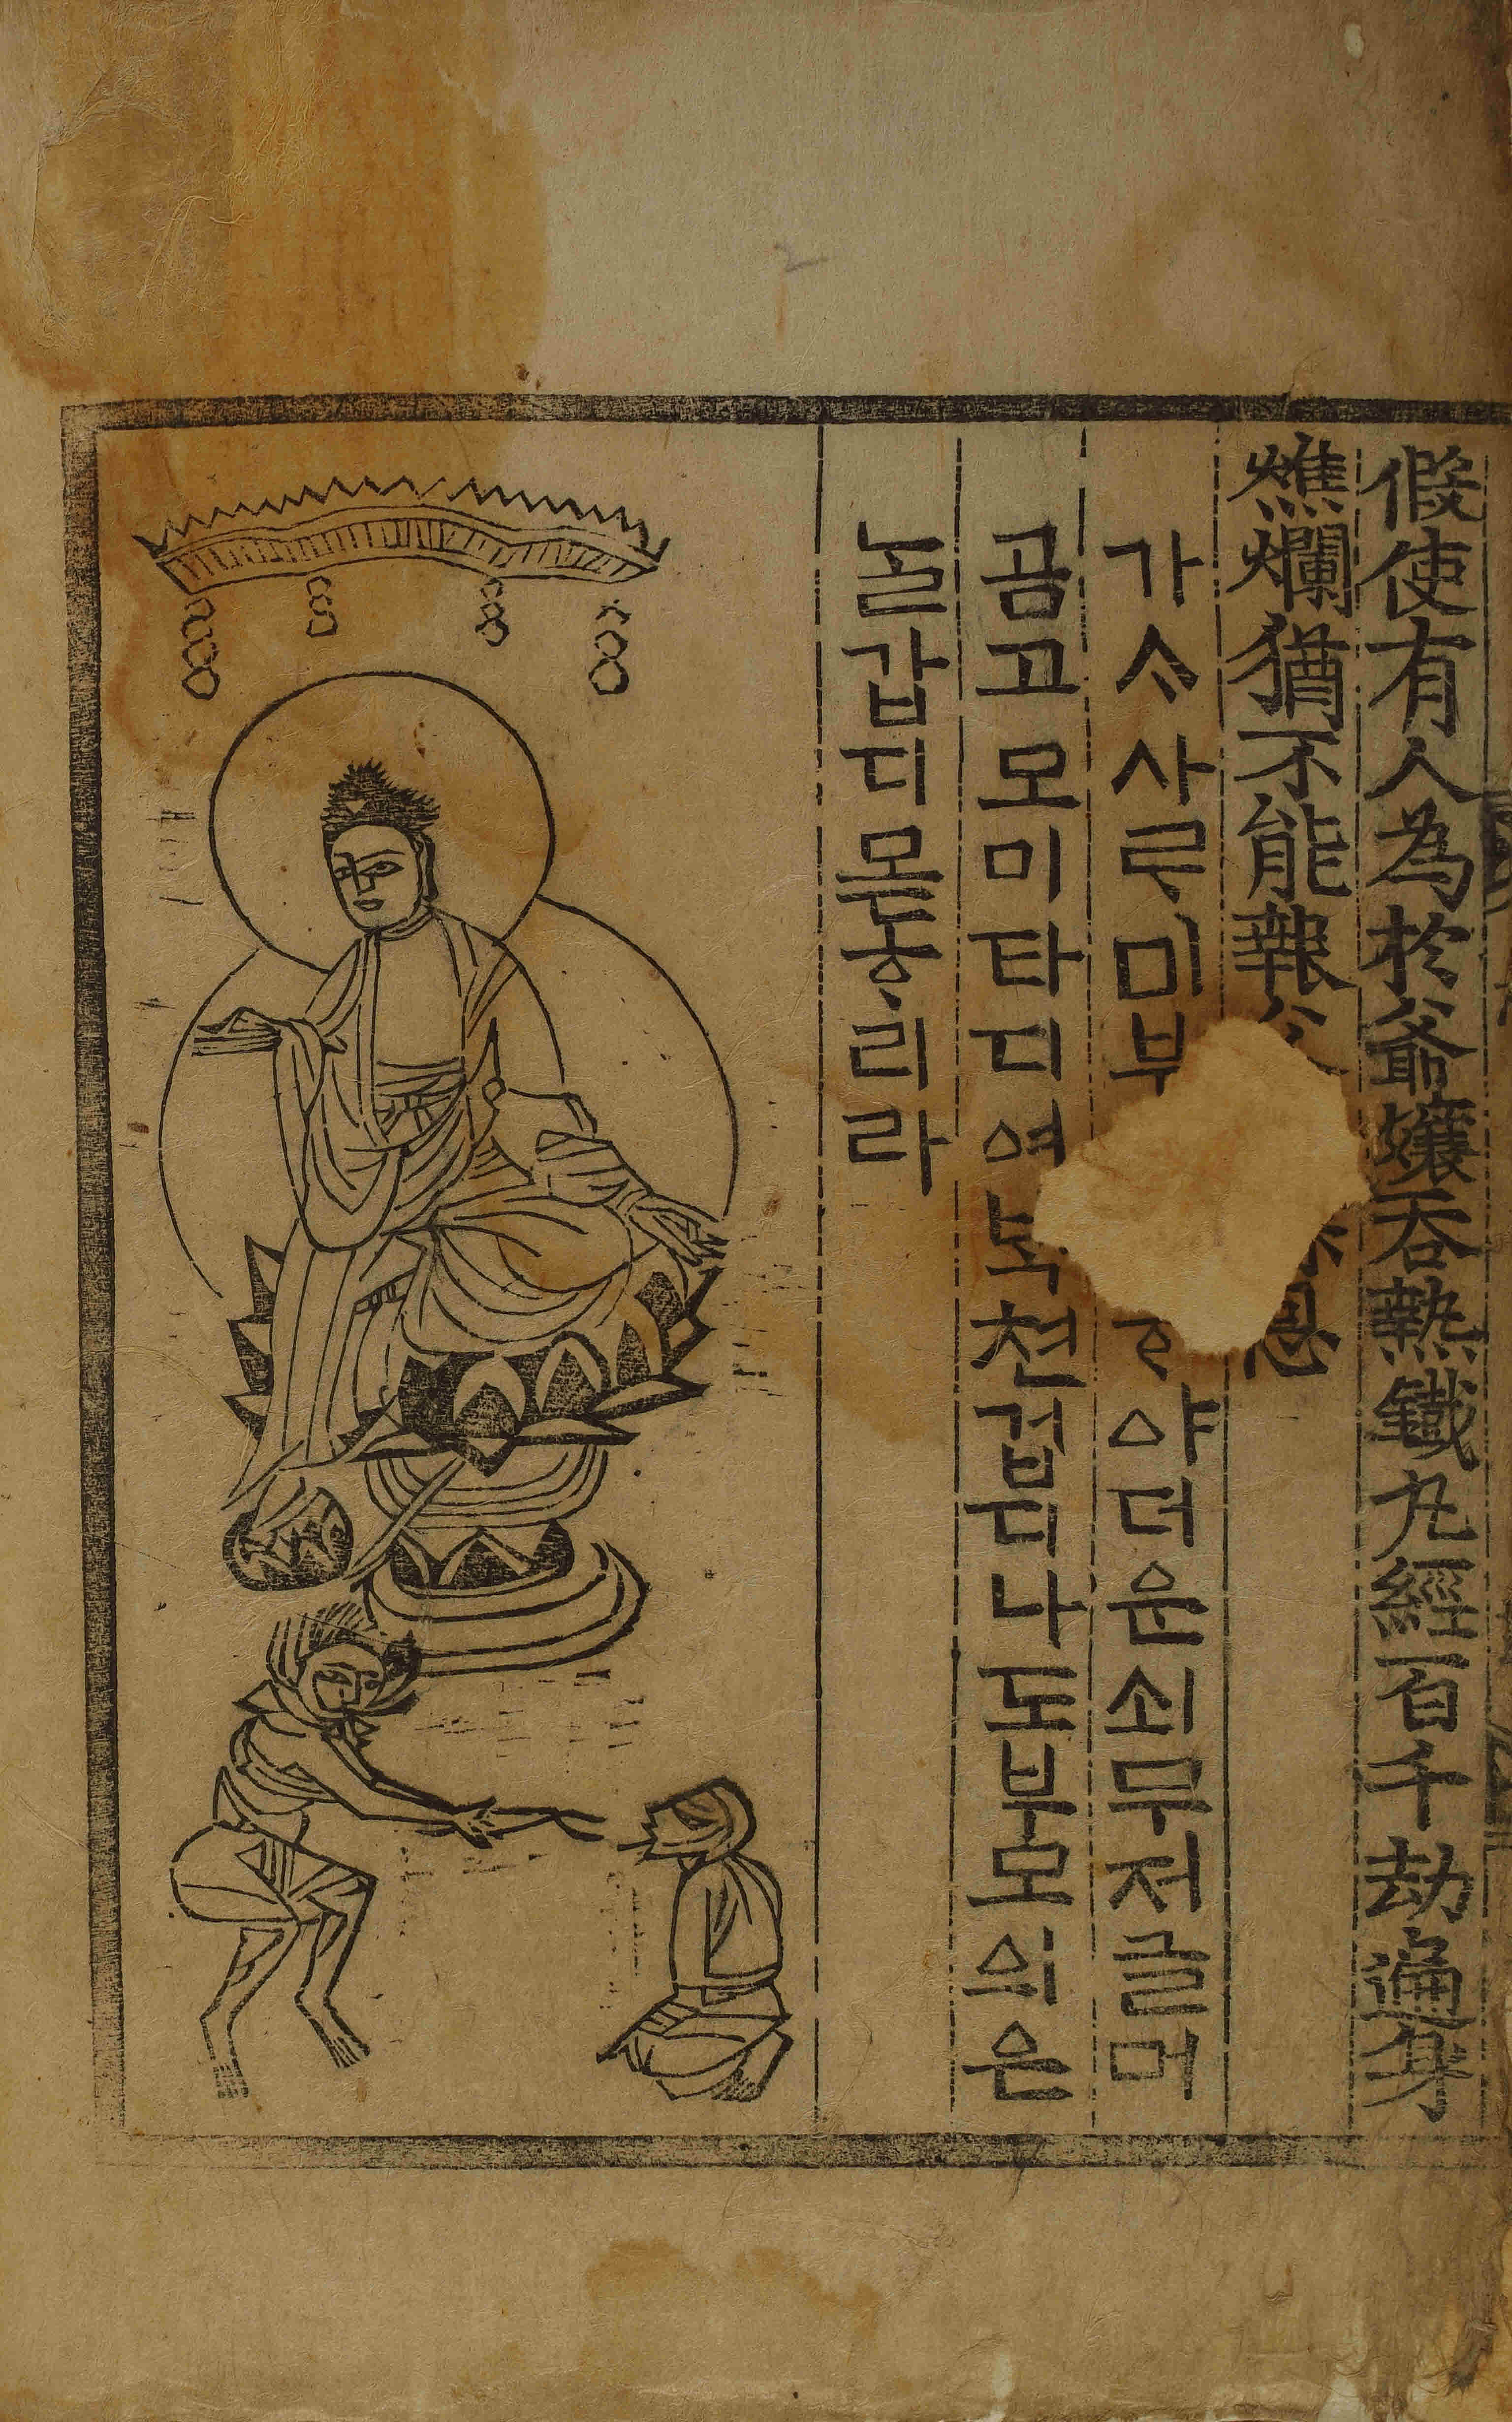 假使有人為於爺孃吞熱鐵丸經百千劫遍身
燋爛猶不能報 恩
가ᄉᆞ사ᄅᆞ미부 야더운쇠무저글머
곰고모미타디여 천겁디나도부모의은
놀갑디몯ᄒᆞ리라